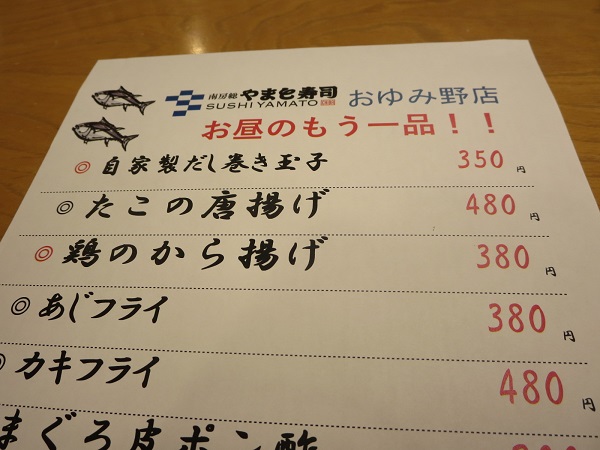 南房総 やまと寿司 おゆみ野店
SUSHI YAMATO
お昼のもう一品！！
◎ 自家製だし巻き玉子 350円
◎ たこの唐揚げ 480円
◎ 鶏のから揚げ 380円
◎ あじフライ 380円
◎ カキフライ 480円
まぐろ皮ポン酢